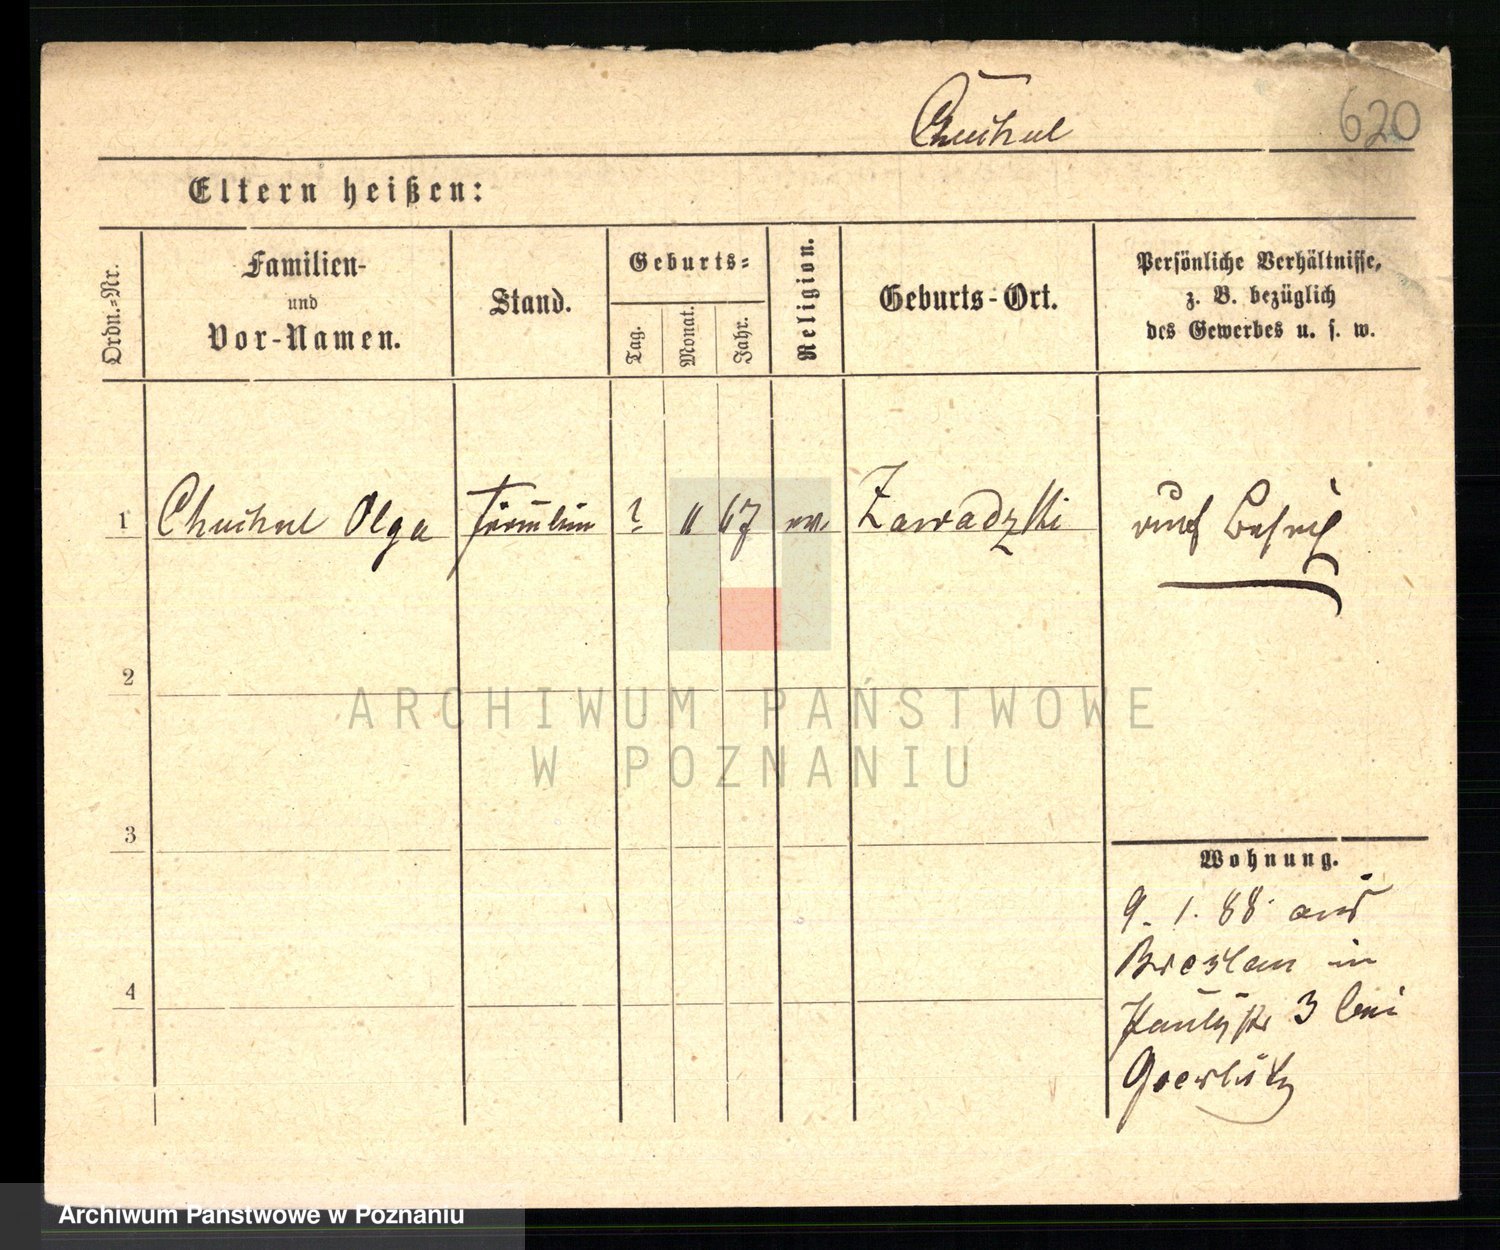 Chuchul 620
Eltern heißen:
Ordn.-Nr.
Familien-
und
Vor-Namen.
Stand.
Geburts-
Tag.
Monat.
Jahr.
Religion.
Geburts-Ort.
Persönliche Verhältnisse,
z. B. bezüglich
des Gewerbes u. s. w.
1 Olga Fräulein ? " 67 ev. Zawadzki auf Besuch
2
ARCHIWUM PAŃSTWOWE
W POZNANIU
3
Wohnung.
9. 1. 88. aus
Breslau in
3 bei
4
Goerlitz
Archiwum Państwowe w Poznaniu